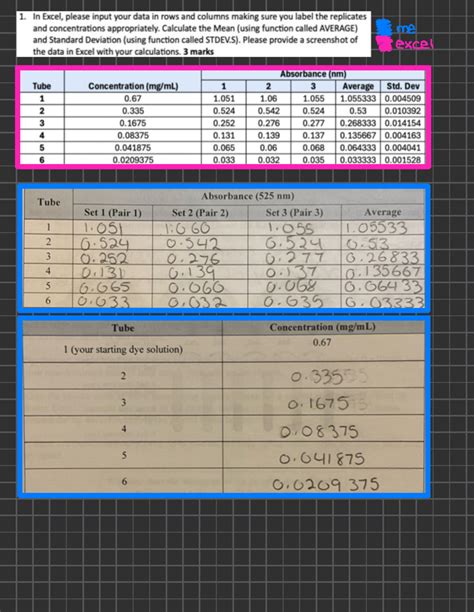 1. In Excel, please input your data in rows and columns making sure you label the replicates
and concentrations appropriately. Calculate the Mean (using function called AVERAGE)
and Standard Deviation (using function called STDEV.S). Please provide a screenshot of
the data in Excel with your calculations. 3 marks
me
excel
Absorbance (nm)
Tube Concentration (mg/mL) 1 2 3 Average Std. Dev
1 0.67 1.051 1.06 1.055 1.055333 0.004509
2 0.335 0.524 0.542 0.524 0.53 0.010392
3 0.1675 0.252 0.276 0.277 0.268333 0.014154
4 0.08375 0.131 0.139 0.137 0.135667 0.004163
5 0.041875 0.065 0.06 0.068 0.064333 0.004041
6 0.0209375 0.033 0.032 0.035 0.033333 0.001528
Tube Absorbance (525 nm)
Set 1 (Pair 1) Set 2 (Pair 2) Set 3 (Pair 3) Average
1 1.051 1.060 1.055 1.05533
2 0.524 0.542 0.524 0.53
3 0.252 0.276 0.277 0.26833
4 0.131 0.139 0.137 0.135667
5 0.065 0.060 0.068 0.06433
6 0.033 0.032 0.035 0.03333
Tube Concentration (mg/mL)
1 (your starting dye solution) 0.67
2 0.335
3 0.1675
4 0.08375
5 0.041875
6 0.0209375